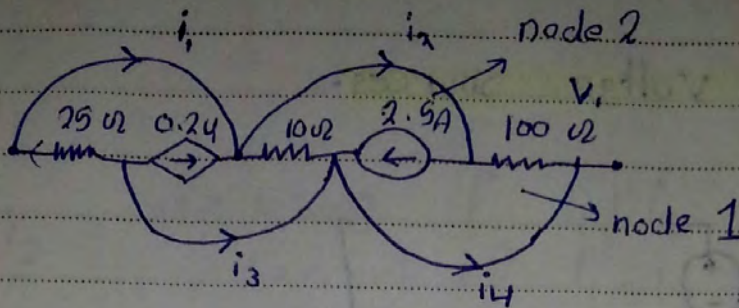 i₁ i₂ node 2
25 Ω 0.2V₁ 10Ω 2.5A 100 Ω V₁
node 1
i₃ i₄